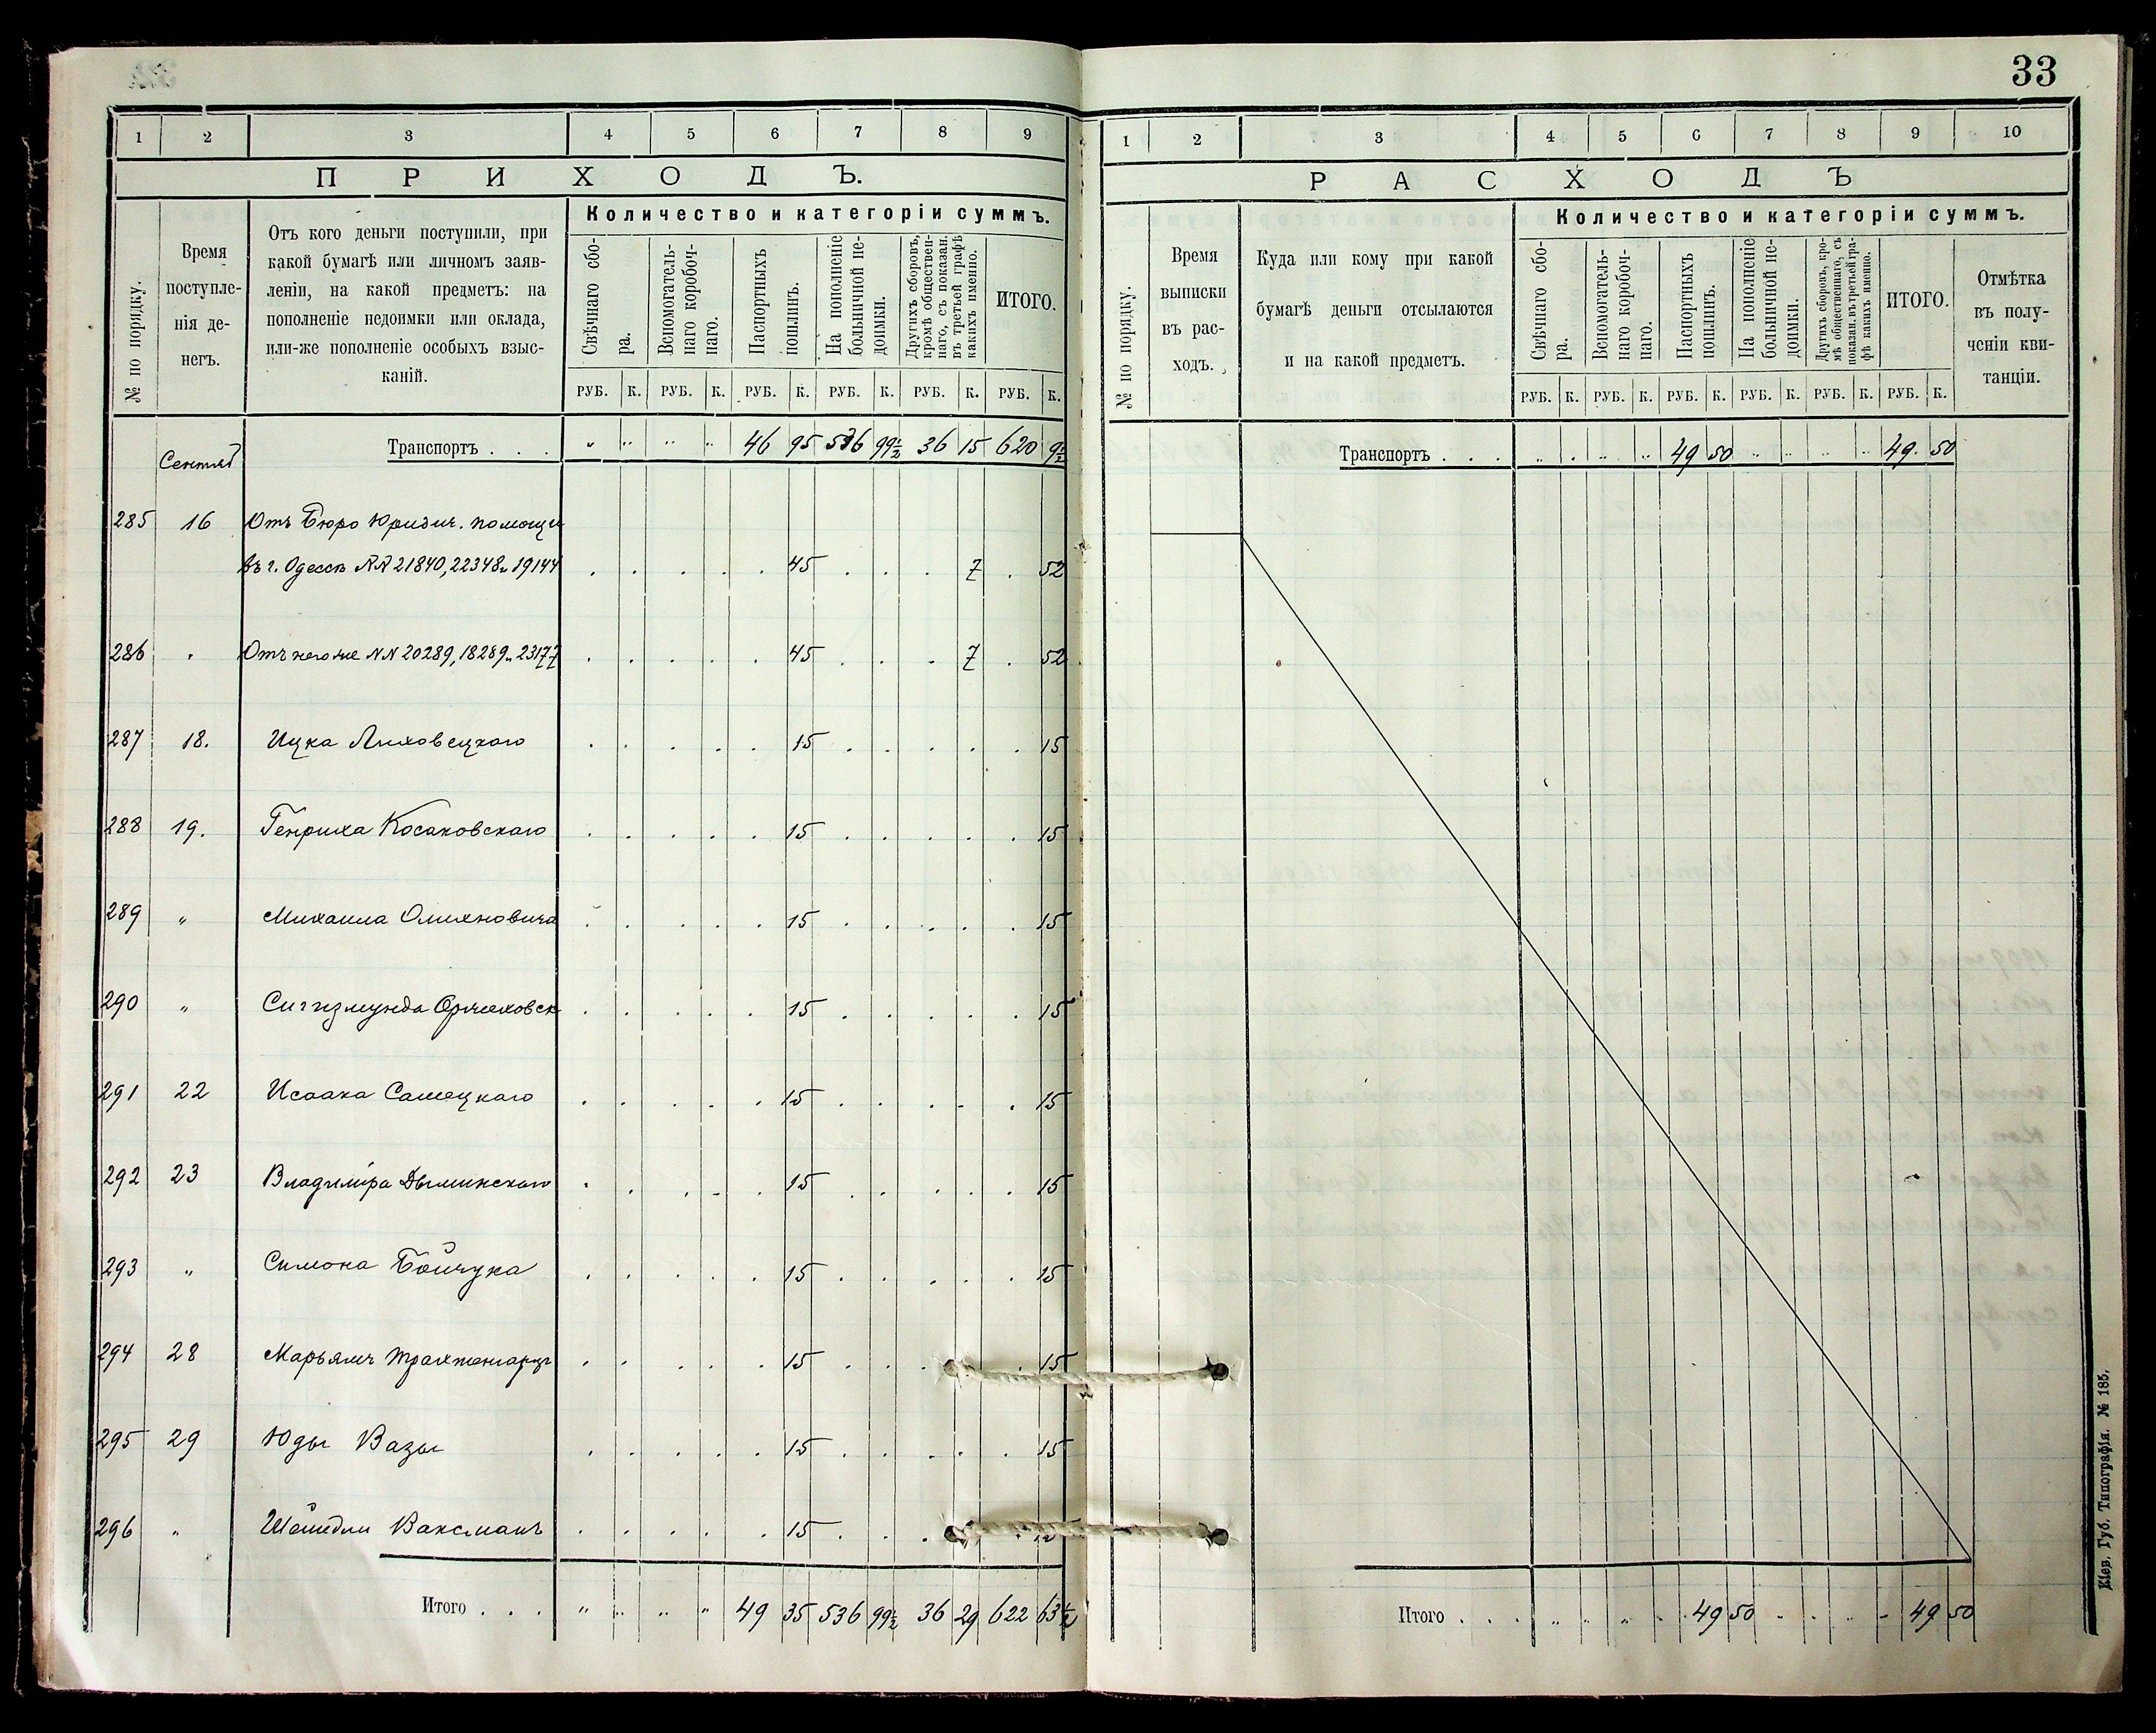 33
1 2 3 4 5 6 7 8 9
ПРИХОДЪ.
№ по порядку.
Время поступле-
нія де-
негъ.
Отъ кого деньги поступили, при
какой бумагѣ или личномъ заяв-
леніи, на какой предметъ: на
пополненіе недоимки или оклада,
или-же пополненіе особыхъ взыс-
каній.
Количество и категоріи суммъ.
Свѣчнаго сбо-
ра.
Вспомогатель-
наго коробоч-
наго.
Паспортныхъ
пошлинъ.
На пополненіе
больничной не-
доимки.
Другихъ сборовъ,
кромѣ обществен-
наго, съ показан.
въ третьей графѣ
какихъ именно.
ИТОГО.
РУБ. К. РУБ. К. РУБ. К. РУБ. К. РУБ. К. РУБ. К.
Транспортъ . . . „ „ „ „ 46 95 536 99½ 36 15 620 9½
Сентяб
285 16 Отъ Бюро Юридич. помощи
въ г. Одессѣ №№ 21840, 22348 и 19144 . . . . . 45 . . . 7 . 52
286 „ Отъ него же №№ 20289, 18289 и 23177 . . . . . 45 . . . 7 . 52
287 18. Ицка Ляховецкаго . . . . . 15 . . . . . 15
288 19. Генриха Косаковскаго . . . . . 15 . . . . . 15
289 „ Михаила Олихновича . . . . . 15 . . . . . 15
290 „ Сигизмунда Оржеховск . . . . . 15 . . . . . 15
291 22 Исаака Самецкаго . . . . . 15 . . . . . 15
292 23 Владиміра Дыминскаго . . . . . 15 . . . . . 15
293 „ Симона Бойчука . . . . . 15 . . . . . 15
294 28 Марьямъ Трахтенгарцъ . . . . . 15 . . . . 15
295 29 Юды Вазы . . . . . 15 . . . . . 15
296 „ Шейндли Ваксманъ . . . . . 15 . . . . 15
Итого . . . „ „ „ „ 49 35 536 99½ 36 29 622 63½
1 2 3 4 5 6 7 8 9 10
РАСХОДЪ
№ по порядку.
Время
выписки
въ рас-
ходъ.
Куда или кому при какой
бумагѣ деньги отсылаются
и на какой предметъ.
Количество и категоріи суммъ.
Свѣчнаго сбо-
ра.
Вспомогатель-
наго коробоч-
наго.
Паспортныхъ
пошлинъ.
На пополненіе
больничной не-
доимки.
Другихъ сборовъ, кро-
мѣ общественнаго, съ
показан. въ третьей гра-
фѣ какихъ именно.
ИТОГО.
Отмѣтка
въ полу-
ченіи кви-
танціи.
РУБ. К. РУБ. К. РУБ. К. РУБ. К. РУБ. К. РУБ. К.
Транспортъ . . . „ . „ „ 49 50 „ „ „ „ 49. 50
Итого . . . „ „ „ . 49 50 . . . . 49 50
Кіев. Губ. Типографія. № 185.